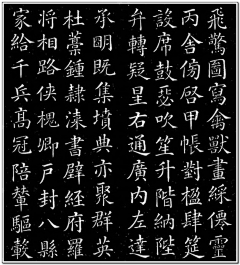 飛驚圖寫禽獸畫綵僊靈
丙舍傍啓甲帳對楹肆筵
設席鼓瑟吹笙升階納陛
弁轉疑星右通廣内左達
承明既集墳典亦聚群英
杜藁鍾隸漆書壁經府羅
將相路俠槐卿戸封八縣
家給千兵髙冠陪輦驅轂